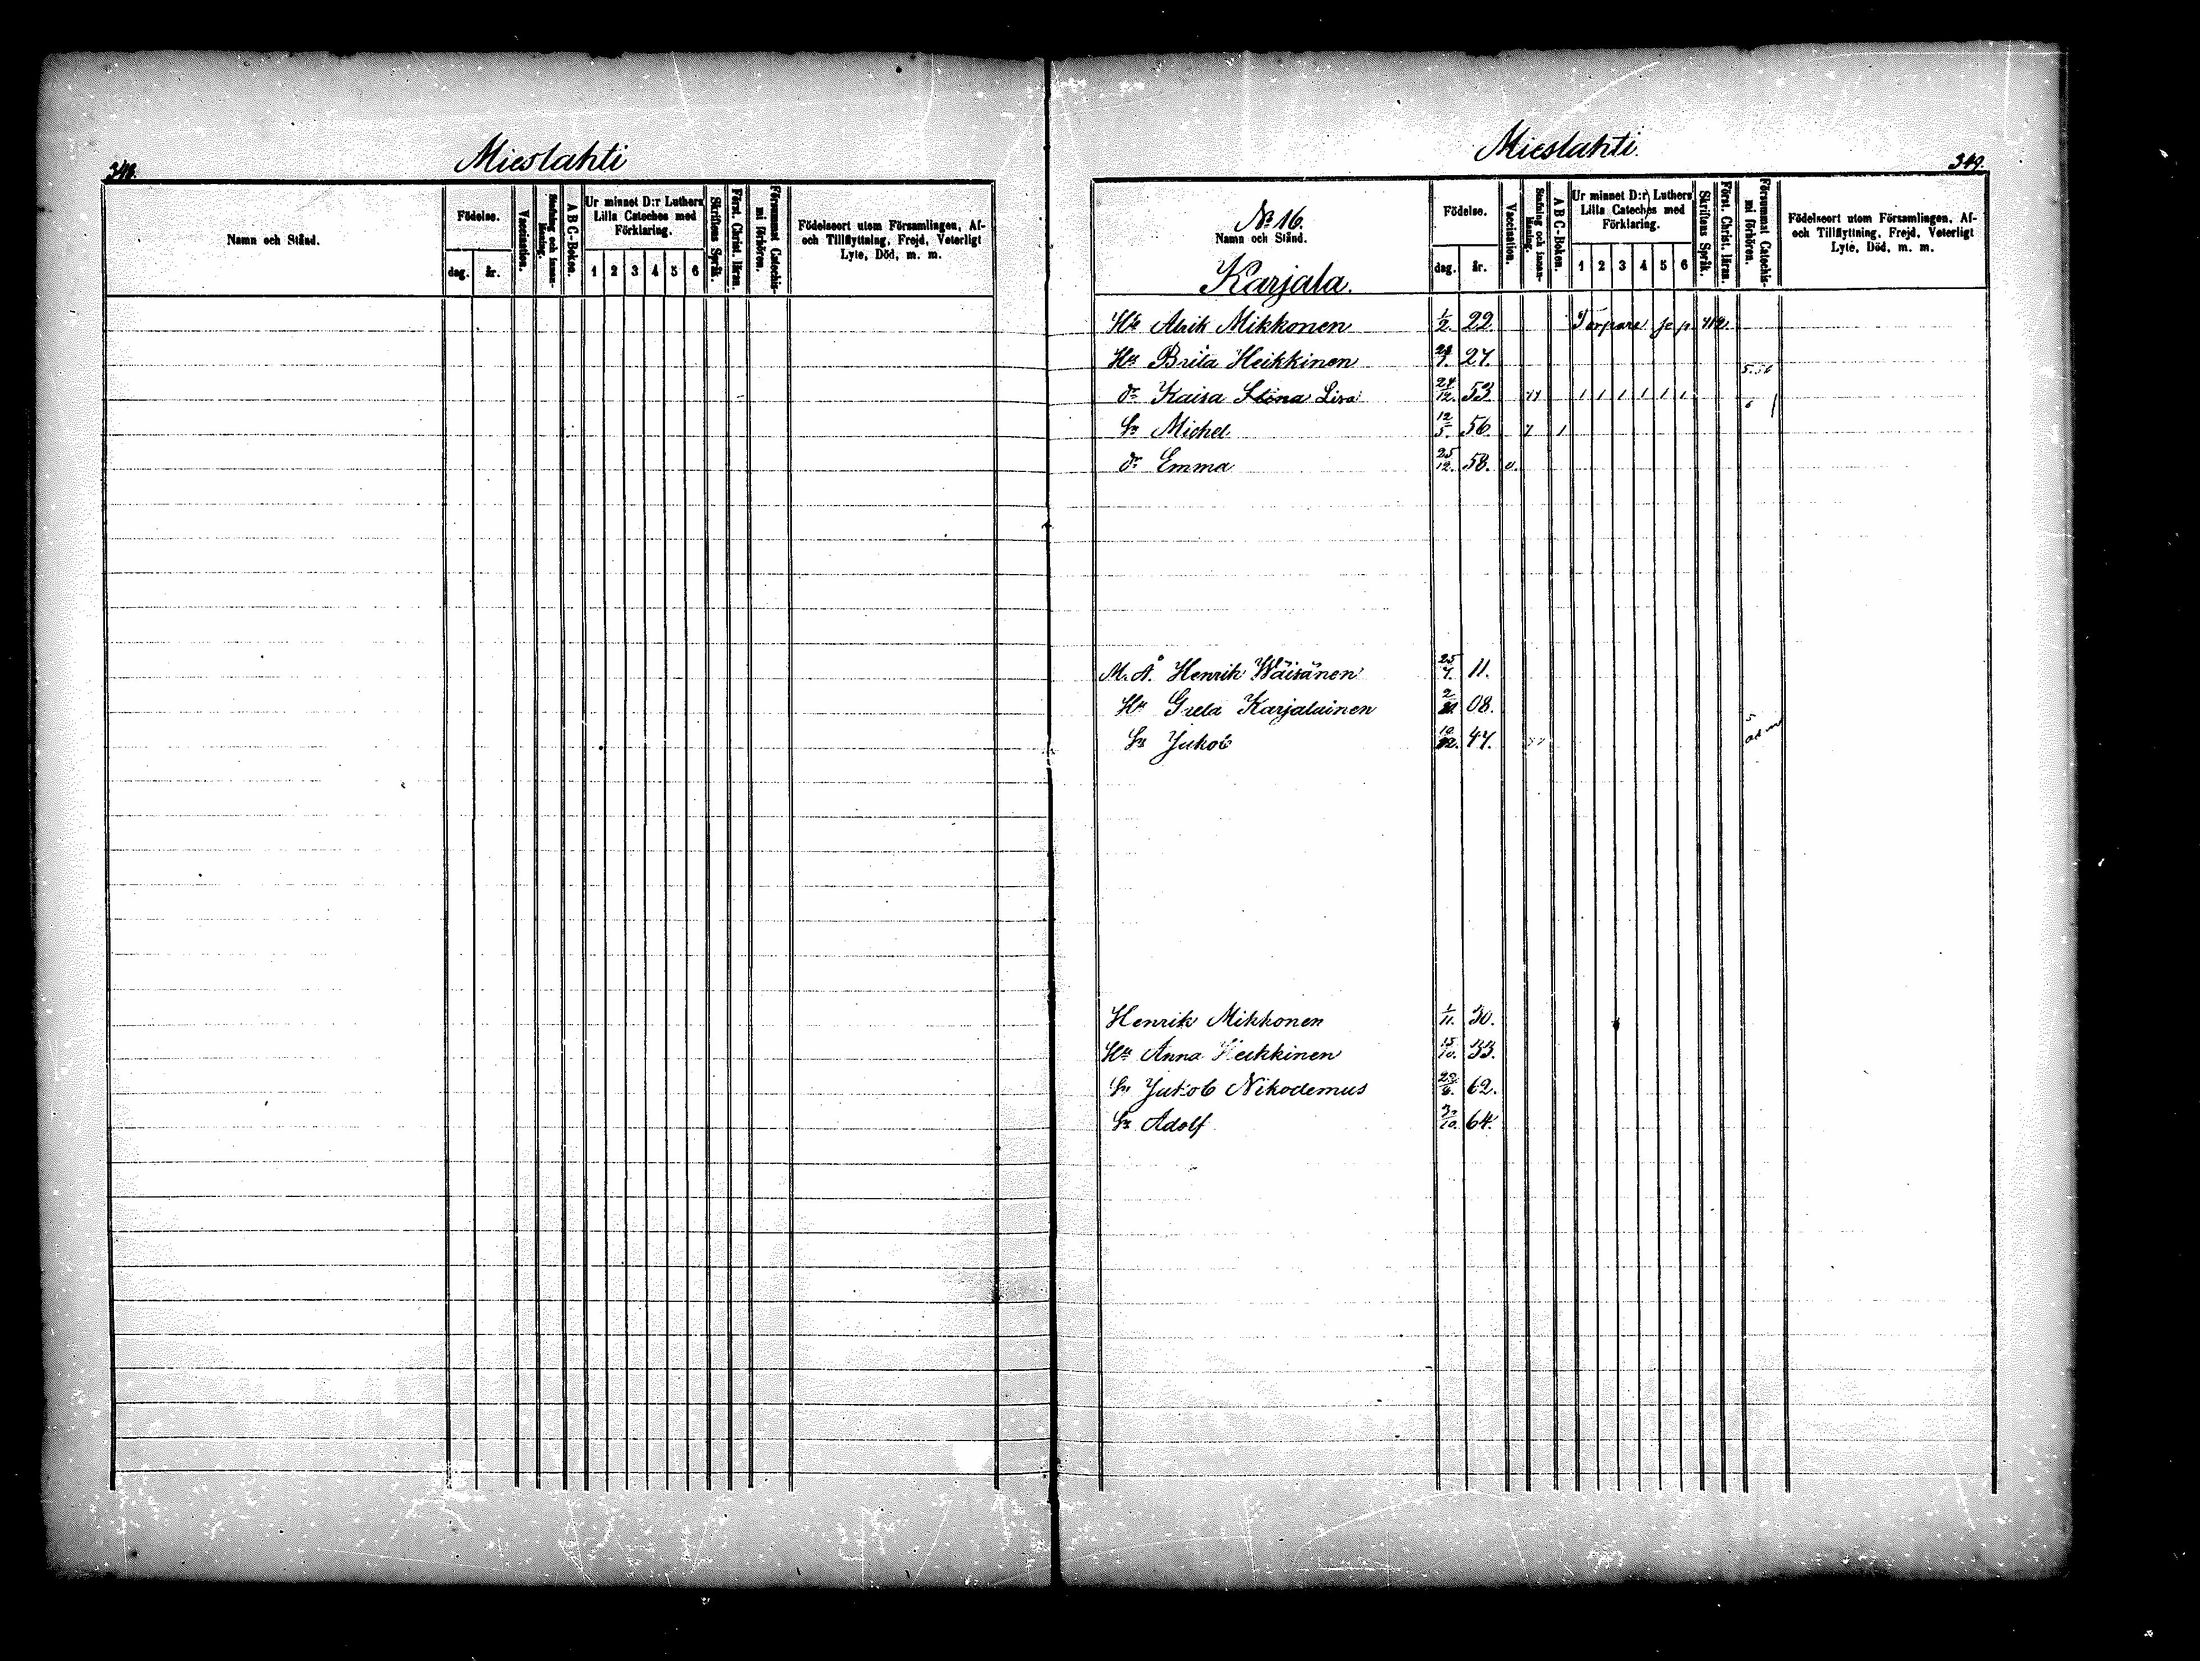 348.
Mieslahti
Namn och Stånd.
Födelse.
dag.
år.
Vaccination.
Stafning och innan-
läsning.
A B C-Boken.
Ur minnet D:r Luthers
Lilla Cateches med
Förklaring.
1 2 3 4 5 6
Skriftens Språk.
Först. Christ. läran.
Försummat Catechis-
mi förhören.
Födelseort utom Församlingen, Af-
och Tillflyttning, Frejd, Veterligt
Lyte, Död, m. m.
Mieslahti
349.
No 16.
Namn och Stånd.
Karjala.
Födelse.
dag.
år.
Vaccination.
Stafning och innan-
läsning.
A B C-Boken.
Ur minnet D:r Luthers
Lilla Cateches med
Förklaring.
1 2 3 4 5 6
Skriftens Språk.
Först. Christ. läran.
Försummat Catechis-
mi förhören.
Födelseort utom Församlingen, Af-
och Tillflyttning, Frejd, Veterligt
Lyte, Död, m. m.
Alrik Mikkonen 1/2. 22. Torpare
Hu Brita Heikkinen 27.
dr Kaisa Stina Lisa 24/12. 53.
Sn Michel 12/5. 56.
dr Emma 25/12. 58. v.
M. Å. Henrik Wäisänen 25/7. 11.
Hu Greta Karjalainen 08.
Sn Jakob 47.
Henrik Mikkonen 1/11. 30.
Hu Anna Heikkinen 15/10. 33.
Sn Jakob Nikodemus 62.
Sn Adolf 64.